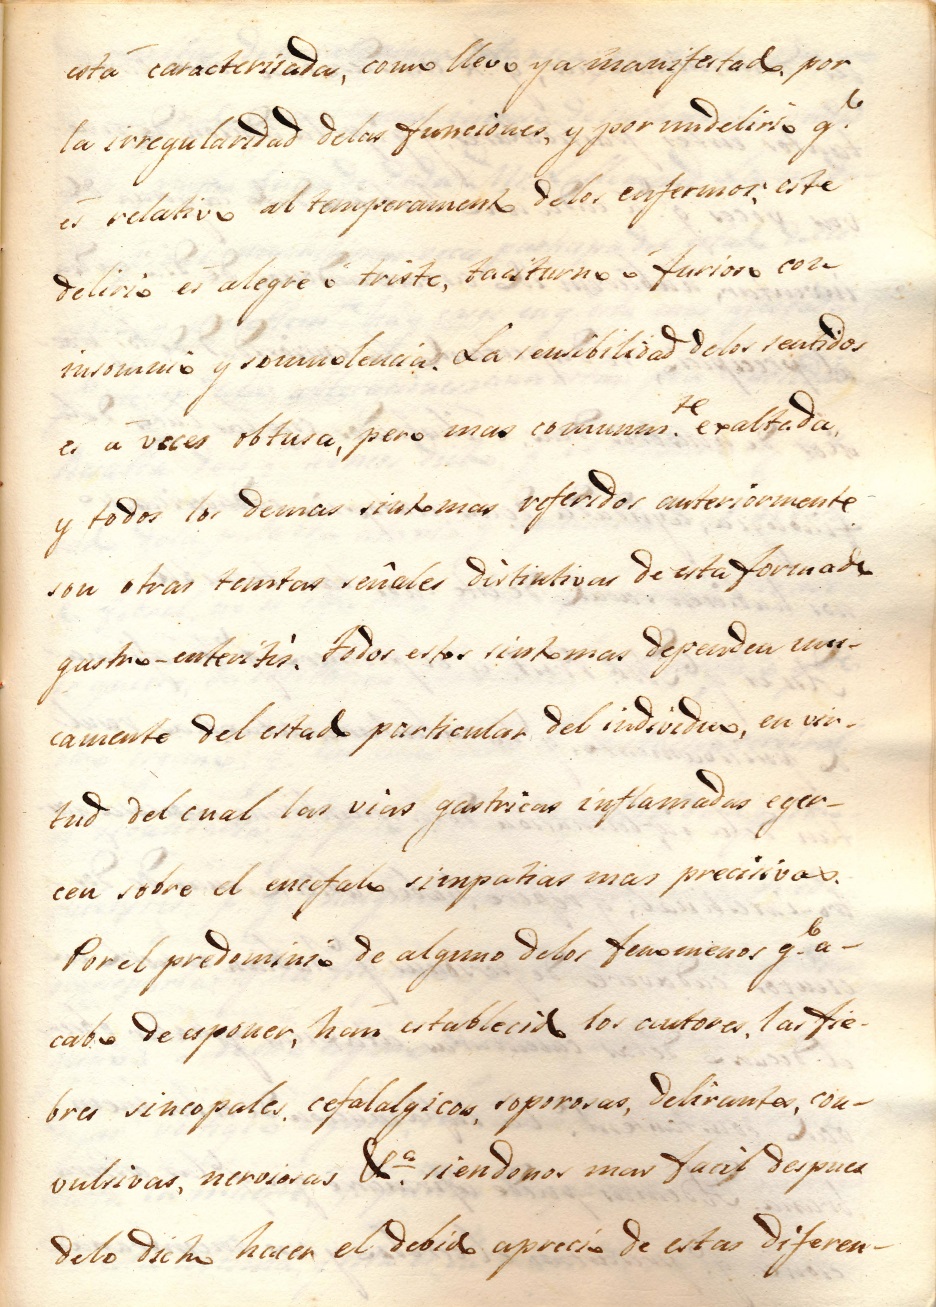 está caracterisada, como llevo ya manifestado, por
la irregularidad delas funciones, y por un delirio q.e
és relativo al temperamento de los enfermos; este
delirio és alegre ó triste, taciturno ó furioso con
insomnio y somnolencia. La sensibilidad delos sentidos
es á veces obtusa, pero mas comunm.te exaltada,
y todos los demas sintomas referidos anteriormente
son otras tantas señales distintivas de esta forma de
gastro-enteritis. Todos estos sintomas dependen uni-
camente del estado particular del individuo, en vir-
tud del cual las vias gastricas inflamadas eger-
cen sobre el encefalo simpatias mas precisivas.
Por el predominio de alguno delos fenomenos q.e a-
cabo de esponer, hán establecido los autores, las fie-
bres sincopales, cefalalgicas, soporosas, delirantes, con-
vulsivas, nerviosas &.a siendonos mas facil despues
delo dicho hacer el debido aprecio de estas diferen-